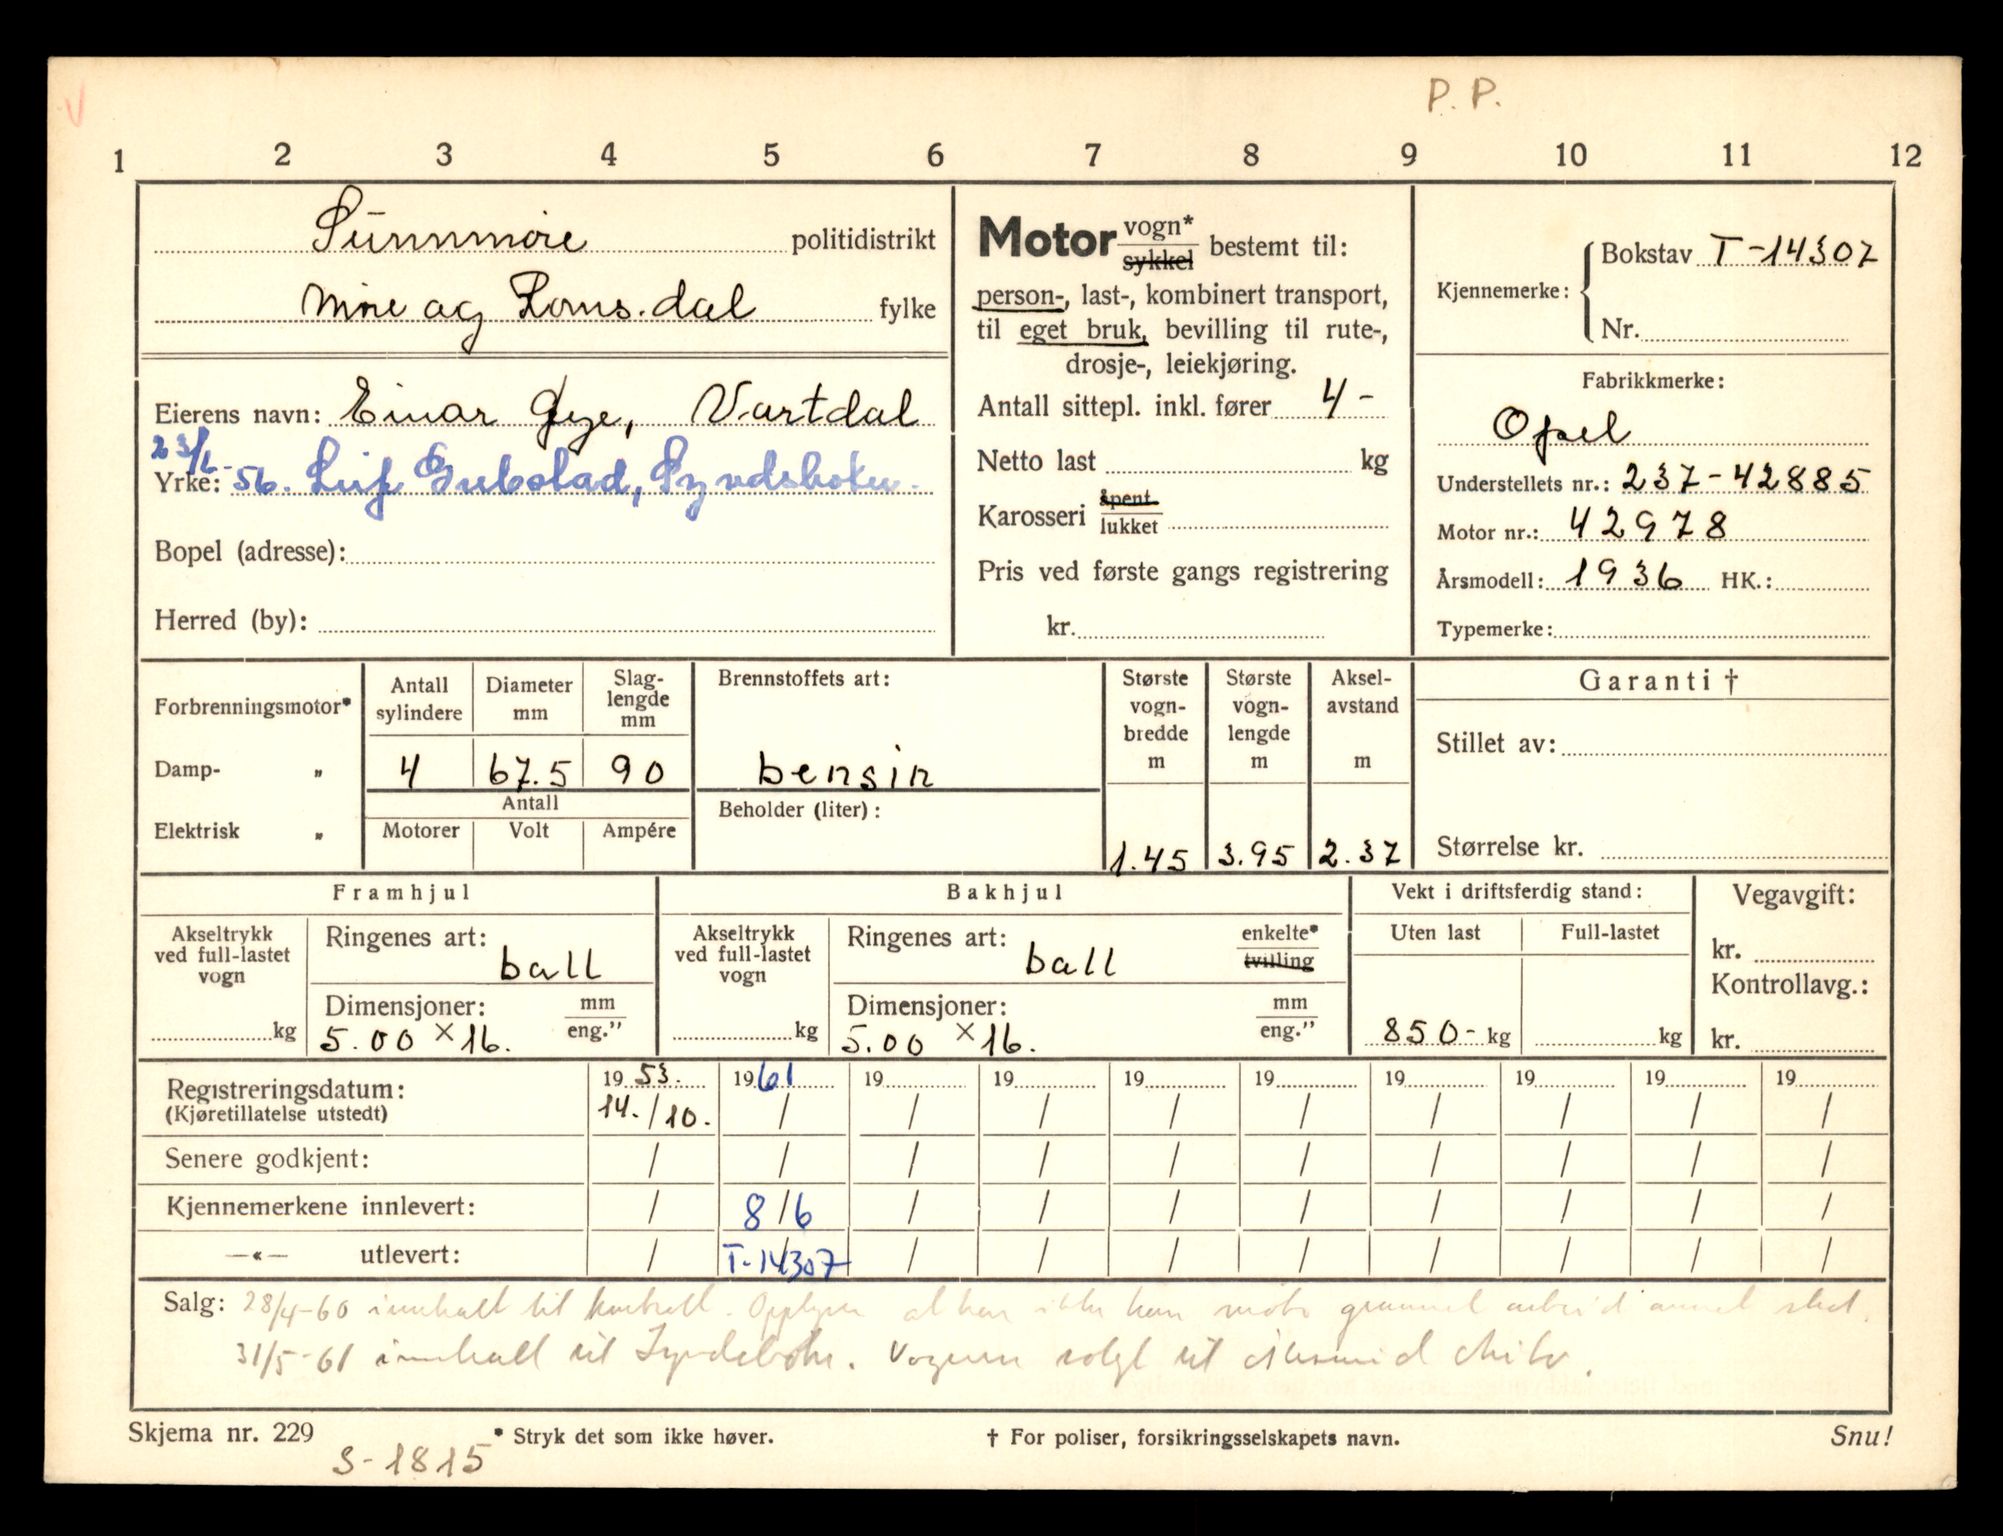 V
P. P.
1 2 3 4 5 6 7 8 9 10 11 12
Sunnmøre politidistrikt
Møre og Romsdal fylke
Eierens navn: Einar Øye, Vartdal
23/6-
Yrke: 56. Leif Gulstad, Syvdsbotn.
Bopel (adresse):
Herred (by):
Motor vogn* sykkel bestemt til:
person-, last-, kombinert transport,
til eget bruk, bevilling til rute-,
drosje-, leiekjøring.
Antall sittepl. inkl. fører 4 -
Netto last kg
Karosseri åpent lukket
Pris ved første gangs registrering
kr.
Kjennemerke: Bokstav T-14307
Nr.
Fabrikkmerke:
Opel
Understellets nr.: 237-42885
Motor nr.: 42978
Årsmodell: 1936 HK.:
Typemerke:
Forbrenningsmotor*
Damp- „
Elektrisk „
Antall sylindere
Diameter mm
Slag-lengde mm
4 67.5 90
Antall
Motorer Volt Ampére
Brennstoffets art:
bensin
Beholder (liter):
Største vogn-bredde m
1.45
Største vogn-lengde m
3.95
Aksel-avstand m
2.37
Garanti †
Stillet av:
Størrelse kr.
Framhjul
Akseltrykk ved full-lastet vogn
kg
Ringenes art: ball
Dimensjoner: mm eng.”
5.00 × 16.
Bakhjul
Akseltrykk ved full-lastet vogn
kg
Ringenes art: ball enkelte* tvilling
Dimensjoner: mm eng.”
5.00 × 16.
Vekt i driftsferdig stand:
Uten last Full-lastet
850- kg kg
Vegavgift:
kr.
Kontrollavg.:
kr.
Registreringsdatum: 19 53. 19 61 19 19 19 19 19 19 19 19
(Kjøretillatelse utstedt) 14./10. / / / / / / / / /
Senere godkjent: / / / / / / / / / /
Kjennemerkene innlevert: / 8/6 / / / / / / / /
—«— utlevert: / T-14307 / / / / / / / /
Salg: 28/4-60 innkalt til kontroll. Opplyser at han ikke kan møte grunnet arbeid annet sted.
31/5-61 innkalt til Syvdsbotn. Vognen solgt til
Skjema nr. 229 * Stryk det som ikke høver. † For poliser, forsikringsselskapets navn. Snu!
S-1815